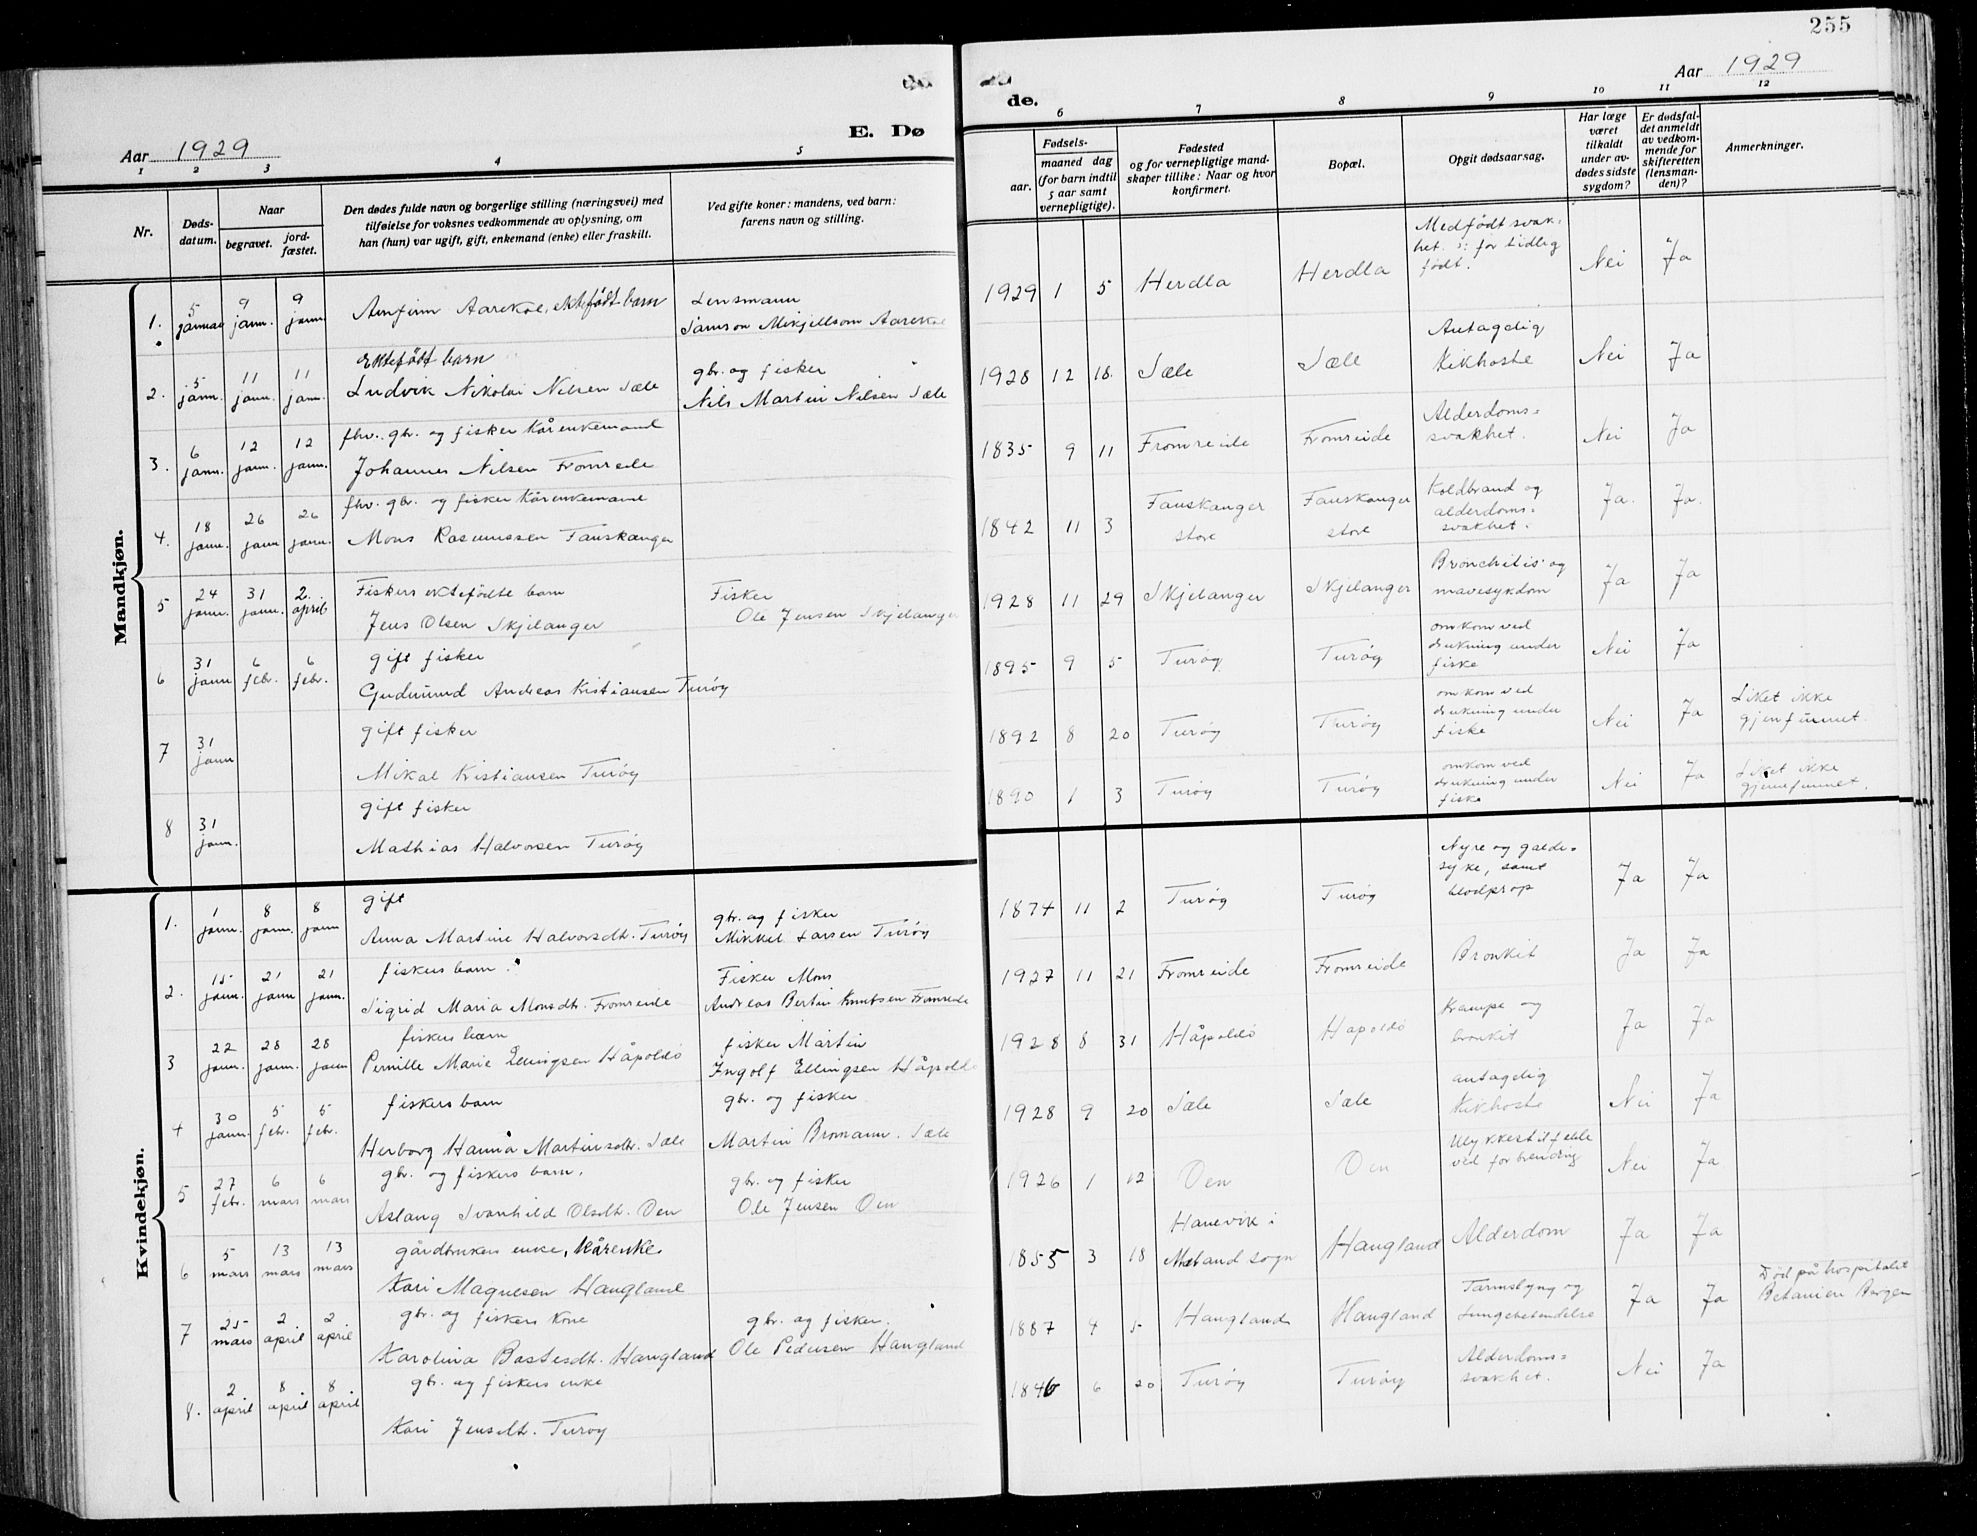 255
Aar 1929
Aar 1929
E. Dø
de.
1 2 3 4 5
6 7 8 9 10 11 12
Nr.
Døds-
datum.
Naar
begravet.
jord-
fæstet.
Den dødes fulde navn og borgerlige stilling (næringsvei) med
tilføielse for voksnes vedkommende av oplysning, om
han (hun) var ugift, gift, enkemand (enke) eller fraskilt.
Ved gifte koner: mandens, ved barn:
farens navn og stilling.
Fødsels-
aar.
maaned dag
(for barn indtil
5 aar samt
vernepligtige).
Fødested
og for vernepligtige mand-
skaper tillike: Naar og hvor
konfirmert.
Bopæl.
Opgit dødsaarsag.
Har læge
været
tilkaldt
under av-
dødes sidste
sygdom?
Er dødsfal-
det anmeldt
av vedkom-
mende for
skifteretten
(lensman-
den)?
Anmerkninger.
Mandkjøn.
1. 5 januar 9 jann. 9 jann. Arnfinn Aarekol, ektefødt barn
Lensmann
Samson Mikjellsom Aarekol
1929 1 5 Herdla Herdla
Medfødt svak-
het. ɔ: for tidlig
født.
Nei Ja
2. 5 jann. 11 jann. 11 jann. Ektefødt barn
Ludvik Nikolai Nilsen Sæle
gbr. og fisker
Nils Martin Nilsen Sæle
1928 12 18. Sæle Sæle
Antagelig
Kikhoste
Nei Ja
3. 6 jann. 12 jann. 12 jann. fhv. gbr. og fisker Kårenkemand
Johannes Nilsen Fromreide
1835 9 11 Fromreide Fromreide
Alderdoms=
svakhet.
Nei Ja
4. 18 jann. 26 jann 26 jann. fhv. gbr. og fisker Kårenkemand
Mons Rasmussen Fauskanger
1842 11 3 Fauskanger
store
Fauskanger
store
Koldbrand og
alderdoms=
svakhet.
Ja. Ja.
5 24 jann. 31 jann. 2. april Fiskers ektefødte barn
Jens Olsen Skjelanger
Fisker
Ole Jensen Skjelanger
1928 11 29 Skjelanger Skjelanger
Bronchitis og
mavesykdom
Ja Ja
6 31 jann 6 febr. 6 febr. gift fisker
Gudmund Andreas Kristiansen Turøy
1895 9 5 Turøy Turøy
omkom ved
drukning under
fiske
Nei Ja
7 31 jann gift fisker
Mikal Kristiansen Turøy
1892 8 20 Turøy Turøy
omkom ved
drukning under
fiske
Nei Ja
Liket ikke
gjenfunnet.
8 31 jann. gift fisker
Mathias Halvorsen Turøy
1890 1 3 Turøy Turøy
omkom ved
drukning under
fiske
Nei Ja
Liket ikke
gjenfunnet.
Kvindekjøn.
1. 1 jann. 8 jann. 8 jann gift
Anna Martine Halvorsdtr. Turøy
gbr. og fisker
Mikkel Larsen Turøy
1874 11 2 Turøy Turøy
Nyre og galde=
syke, samt
blodprop
Ja Ja
2. 15 jann. 21 jann 21 jann. fiskers barn.
Sigrid Maria Monsdtr. Fromreide
Fisker Mons
Andreas Bertin Knutsen Fromreide
1927 11 21 Fromreide Fromreide
Bronkit
Ja Ja
3 22 jann. 28 jann. 28 jann fiskers barn
Pernille Marie Ellingsen Håpoldø
fisker Martin
Ingolf Ellingsen Håpoldø
1928 8 31 Håpoldø Håpoldø
Krampe og
bronkit
Ja Ja
4 30 jann. 5 febr. 5 febr. fiskers barn
Herborg Hanna Martinsdtr. Sæle
gbr. og fisker
Martin Bromann. Sæle
1928 9 20 Sæle Sæle
antagelig
Kikhoste
Nei Ja
5 27 febr. 6 mars 6 mars gbr. og fiskers barn.
Aslaug Svanhild Olsdtr. Oen
gbr. og fisker
Ole Jensen Oen
1926 1 12 Oen Oen
Ulykkestilfelle
ved forbrending
Nei Ja
6 5 mars 13 mars 13 mars gårdbrukers enke, Kårenke.
Kari Magnesen Haugland
1855 3 18 Hanevik i
Meland sogn
Haugland Alderdom
Ja Ja
7 25 mars 2 april 2 april gbr. og fiskers kone
Karolina Bastesdtr. Haugland
gbr. og fisker.
Ole Pedersen Haugland
1887 4 5 Haugland Haugland
Tarmslyng og
Lungebetendelse
Ja Ja
Død på hospitalet
Betanien Bergen
8. 2 april 8 april 8 april gbr. og fiskers enke
Kari Jensdtr. Turøy
1846 6 20 Turøy Turøy
Alderdoms=
svakhet.
Nei Ja